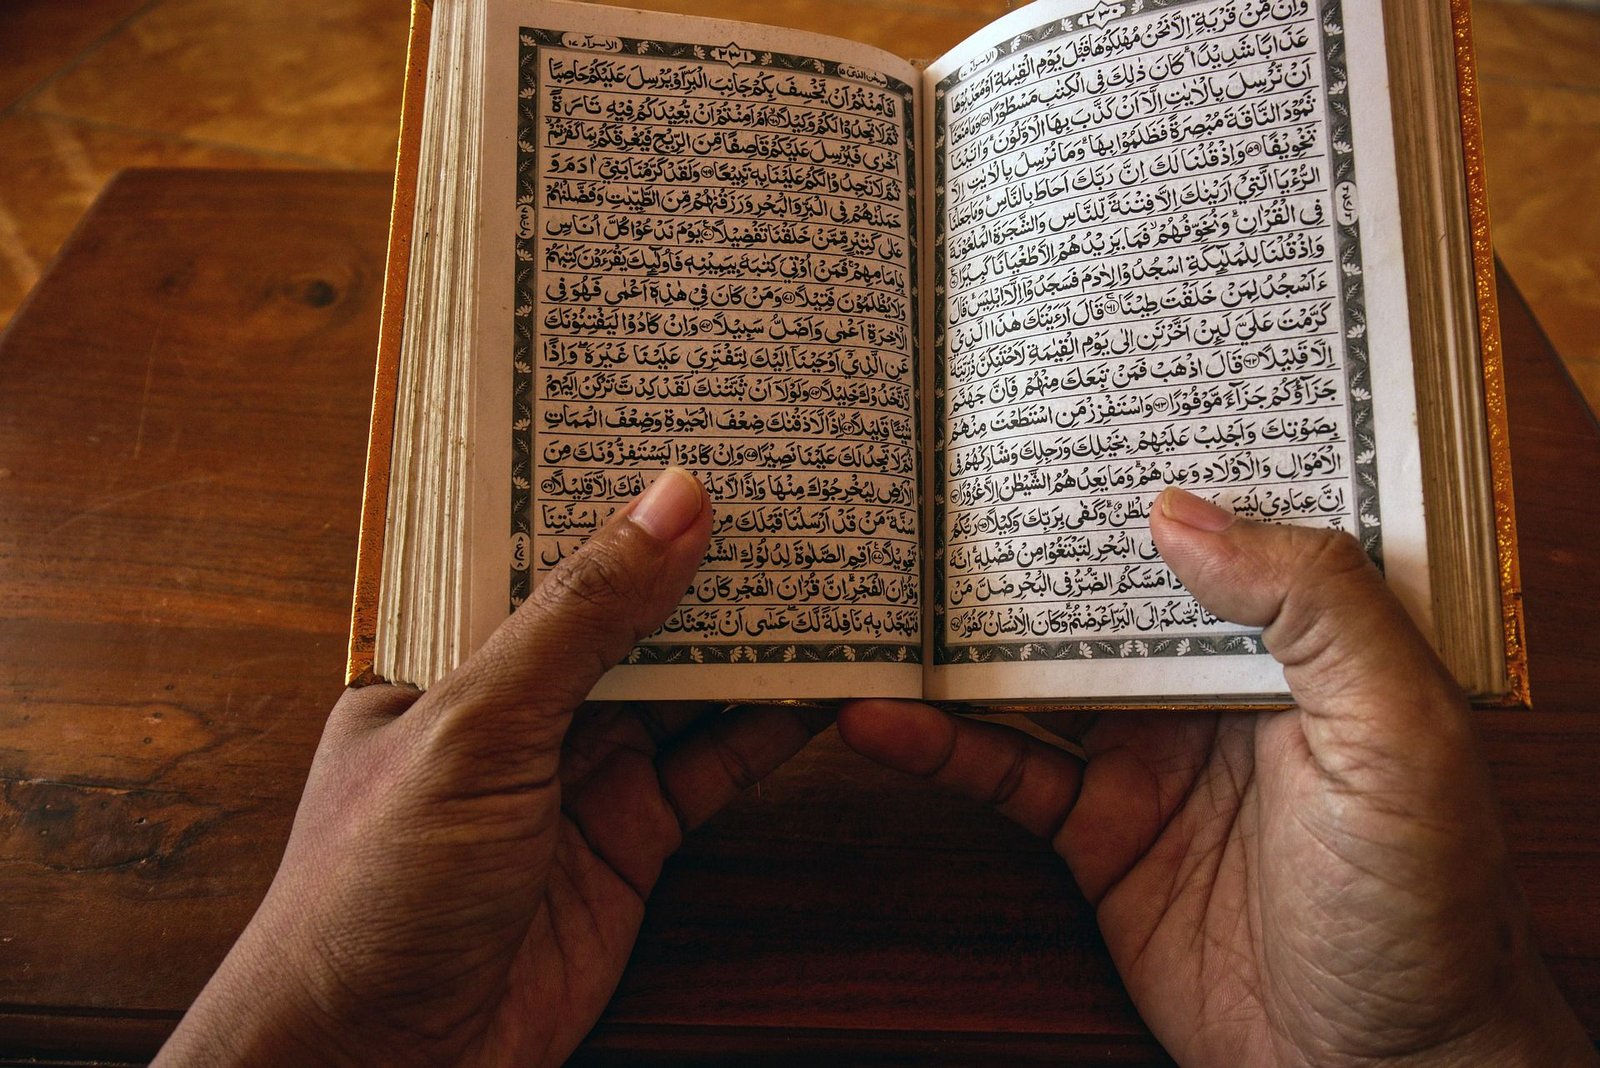 ٢٣٠
الاسرآء ١٧
وَاِنْ مِّنْ قَرْيَةٍ اِلَّا نَحْنُ مُهْلِكُوْهَا قَبْلَ يَوْمِ الْقِيٰمَةِ اَوْ مُعَذِّبُوْهَا
عَذَابًا شَدِيْدًا ۗ كَانَ ذٰلِكَ فِى الْكِتٰبِ مَسْطُوْرًا ٥٨ وَمَا مَنَعَنَآ
اَنْ نُّرْسِلَ بِالْاٰيٰتِ اِلَّآ اَنْ كَذَّبَ بِهَا الْاَوَّلُوْنَ ۗ وَاٰتَيْنَا
ثَمُوْدَ النَّاقَةَ مُبْصِرَةً فَظَلَمُوْا بِهَا ۗ وَمَا نُرْسِلُ بِالْاٰيٰتِ اِلَّا
تَخْوِيْفًا ٥٩ وَاِذْ قُلْنَا لَكَ اِنَّ رَبَّكَ اَحَاطَ بِالنَّاسِ ۗ وَمَا جَعَلْنَا
الرُّءْيَا الَّتِيْٓ اَرَيْنٰكَ اِلَّا فِتْنَةً لِّلنَّاسِ وَالشَّجَرَةَ الْمَلْعُوْنَةَ
فِى الْقُرْاٰنِ ۗ وَنُخَوِّفُهُمْ ۙ فَمَا يَزِيْدُهُمْ اِلَّا طُغْيَانًا كَبِيْرًا ٦٠
وَاِذْ قُلْنَا لِلْمَلٰٓئِكَةِ اسْجُدُوْا لِاٰدَمَ فَسَجَدُوْٓا اِلَّآ اِبْلِيْسَ ۗ قَالَ
ءَاَسْجُدُ لِمَنْ خَلَقْتَ طِيْنًا ٦١ قَالَ اَرَءَيْتَكَ هٰذَا الَّذِيْ
كَرَّمْتَ عَلَيَّ لَئِنْ اَخَّرْتَنِ اِلٰى يَوْمِ الْقِيٰمَةِ لَاَحْتَنِكَنَّ ذُرِّيَّتَهٗٓ
اِلَّا قَلِيْلًا ٦٢ قَالَ اذْهَبْ فَمَنْ تَبِعَكَ مِنْهُمْ فَاِنَّ جَهَنَّمَ
جَزَآؤُكُمْ جَزَآءً مَّوْفُوْرًا ٦٣ وَاسْتَفْزِزْ مَنِ اسْتَطَعْتَ مِنْهُمْ
بِصَوْتِكَ وَاَجْلِبْ عَلَيْهِمْ بِخَيْلِكَ وَرَجِلِكَ وَشَارِكْهُمْ فِى
الْاَمْوَالِ وَالْاَوْلَادِ وَعِدْهُمْ ۗ وَمَا يَعِدُهُمُ الشَّيْطٰنُ اِلَّا غُرُوْرًا ٦٤
اِنَّ عِبَادِيْ لَيْسَ سُلْطٰنٌ ۗ وَكَفٰى بِرَبِّكَ وَكِيْلًا ٦٥ رَبُّكُمُ
الْبَحْرِ لِتَبْتَغُوْا مِنْ فَضْلِهٖ ۗ اِنَّهٗ
مَسَّكُمُ الضُّرُّ فِى الْبَحْرِ ضَلَّ مَنْ
نَجّٰىكُمْ اِلَى الْبَرِّ اَعْرَضْتُمْ ۗ وَكَانَ الْاِنْسَانُ كَفُوْرًا ٦٧
سبحن الذى ١٥
٢٣١
الاسرآء ١٧
اَفَاَمِنْتُمْ اَنْ يَّخْسِفَ بِكُمْ جَانِبَ الْبَرِّ اَوْ يُرْسِلَ عَلَيْكُمْ حَاصِبًا
ثُمَّ لَا تَجِدُوْا لَكُمْ وَكِيْلًا ٦٨ اَمْ اَمِنْتُمْ اَنْ يُّعِيْدَكُمْ فِيْهِ تَارَةً
اُخْرٰى فَيُرْسِلَ عَلَيْكُمْ قَاصِفًا مِّنَ الرِّيْحِ فَيُغْرِقَكُمْ بِمَا كَفَرْتُمْ
ثُمَّ لَا تَجِدُوْا لَكُمْ عَلَيْنَا بِهٖ تَبِيْعًا ٦٩ وَلَقَدْ كَرَّمْنَا بَنِيْٓ اٰدَمَ وَ
حَمَلْنٰهُمْ فِى الْبَرِّ وَالْبَحْرِ وَرَزَقْنٰهُمْ مِّنَ الطَّيِّبٰتِ وَفَضَّلْنٰهُمْ
عَلٰى كَثِيْرٍ مِّمَّنْ خَلَقْنَا تَفْضِيْلًا ٧٠ يَوْمَ نَدْعُوْا كُلَّ اُنَاسٍ
بِاِمَامِهِمْ ۚ فَمَنْ اُوْتِيَ كِتٰبَهٗ بِيَمِيْنِهٖ فَاُولٰٓئِكَ يَقْرَءُوْنَ كِتٰبَهُمْ
وَلَا يُظْلَمُوْنَ فَتِيْلًا ٧١ وَمَنْ كَانَ فِيْ هٰذِهٖٓ اَعْمٰى فَهُوَ فِى
الْاٰخِرَةِ اَعْمٰى وَاَضَلُّ سَبِيْلًا ٧٢ وَاِنْ كَادُوْا لَيَفْتِنُوْنَكَ
عَنِ الَّذِيْٓ اَوْحَيْنَآ اِلَيْكَ لِتَفْتَرِيَ عَلَيْنَا غَيْرَهٗ ۖ وَاِذًا
لَّاتَّخَذُوْكَ خَلِيْلًا ٧٣ وَلَوْلَآ اَنْ ثَبَّتْنٰكَ لَقَدْ كِدْتَّ تَرْكَنُ اِلَيْهِمْ
شَيْـًٔا قَلِيْلًا ٧٤ اِذًا لَّاَذَقْنٰكَ ضِعْفَ الْحَيٰوةِ وَضِعْفَ الْمَمَاتِ
ثُمَّ لَا تَجِدُ لَكَ عَلَيْنَا نَصِيْرًا ٧٥ وَاِنْ كَادُوْا لَيَسْتَفِزُّوْنَكَ مِنَ
الْاَرْضِ لِيُخْرِجُوْكَ مِنْهَا وَاِذًا لَّا اِلَّا قَلِيْلًا ٧٦
سُنَّةَ مَنْ قَدْ اَرْسَلْنَا قَبْلَكَ مِنْ لِسُنَّتِنَا
تَحْوِيْلًا ٧٧ اَقِمِ الصَّلٰوةَ لِدُلُوْكِ
وَقُرْاٰنَ الْفَجْرِ ۗ اِنَّ قُرْاٰنَ الْفَجْرِ كَانَ
فَتَهَجَّدْ بِهٖ نَافِلَةً لَّكَ ۖ عَسٰٓى اَنْ يَّبْعَثَكَ